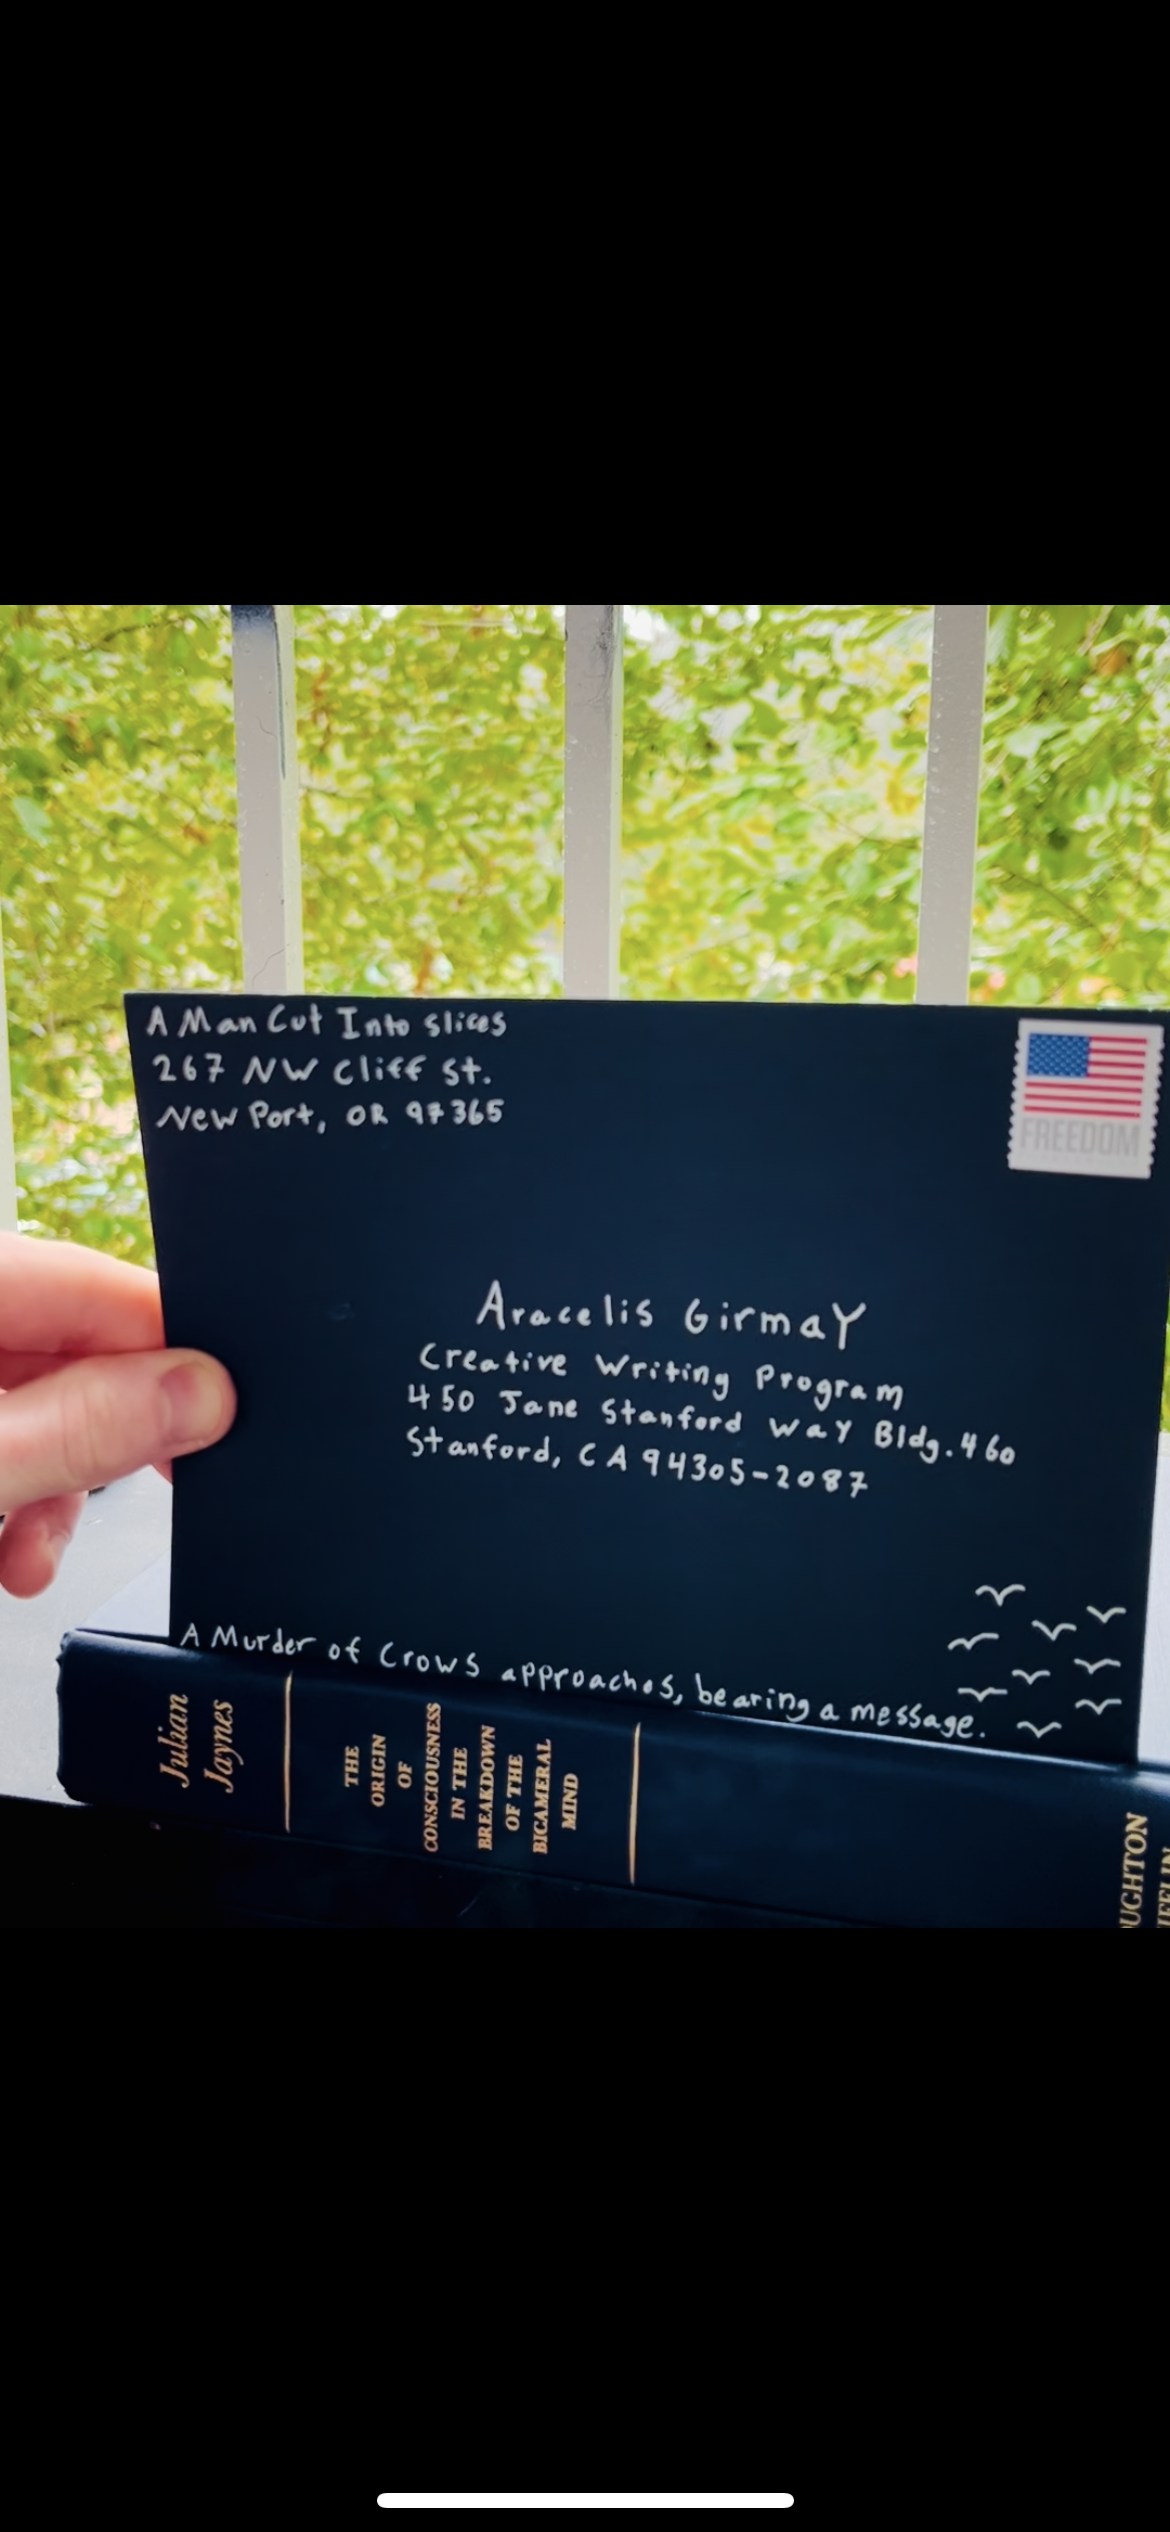 A Man Cut Into slices
267 NW Cliff St.
New Port, OR 97365
FREEDOM
Aracelis Girmay
Creative Writing Program
450 Jane Stanford Way Bldg. 460
Stanford, CA 94305-2087
A Murder of Crows approaches, bearing a message.
Julian
Jaynes
THE
ORIGIN
OF
CONSCIOUSNESS
IN THE
BREAKDOWN
OF THE
BICAMERAL
MIND
OUGHTON
IFFLIN